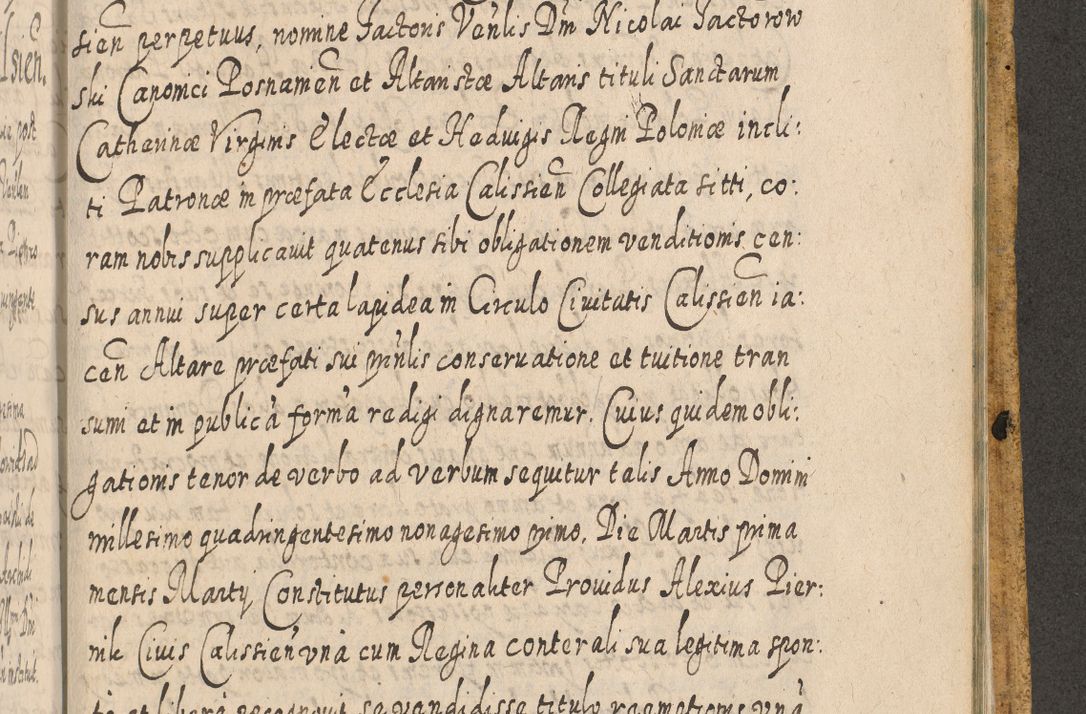 sień perpetuus, nomine Factoris Veńlis Dm̃ Nicolai Jactorow
ski Canonici Posnanień et Altaristæ Altaris tituli Sanctarum
Catherinæ Virginis Electæ et Heduigis Regni Poloniæ incli:
ti Patronæ in præfata Ecclesia Calissień Collegiata sitti, co:
ram nobis supplicauit quatenus sibi obligationem venditionis, cen:
sus annui super certa lapidea in Circulo Ciuitatis Calissień ia:
ceń Altare præfati sui pn̄lis conseruatione et tuitione tran
sumi et in publicà formà redigi dignaremur. Cuius quidem obli:
gationis tenor de verbo ad verbum sequitur talis Anno Domini
millesimo quadringentesimo nonagesimo primo, Die Martis prima
mensis Martÿ Constitutus personaliter Prouidus Alexius Pier:
nik Ciuis Calissień vnà cum Regina conterali sua legitima spon:
te et liberà recognouit se vendidisse titulo reemptionis vnà